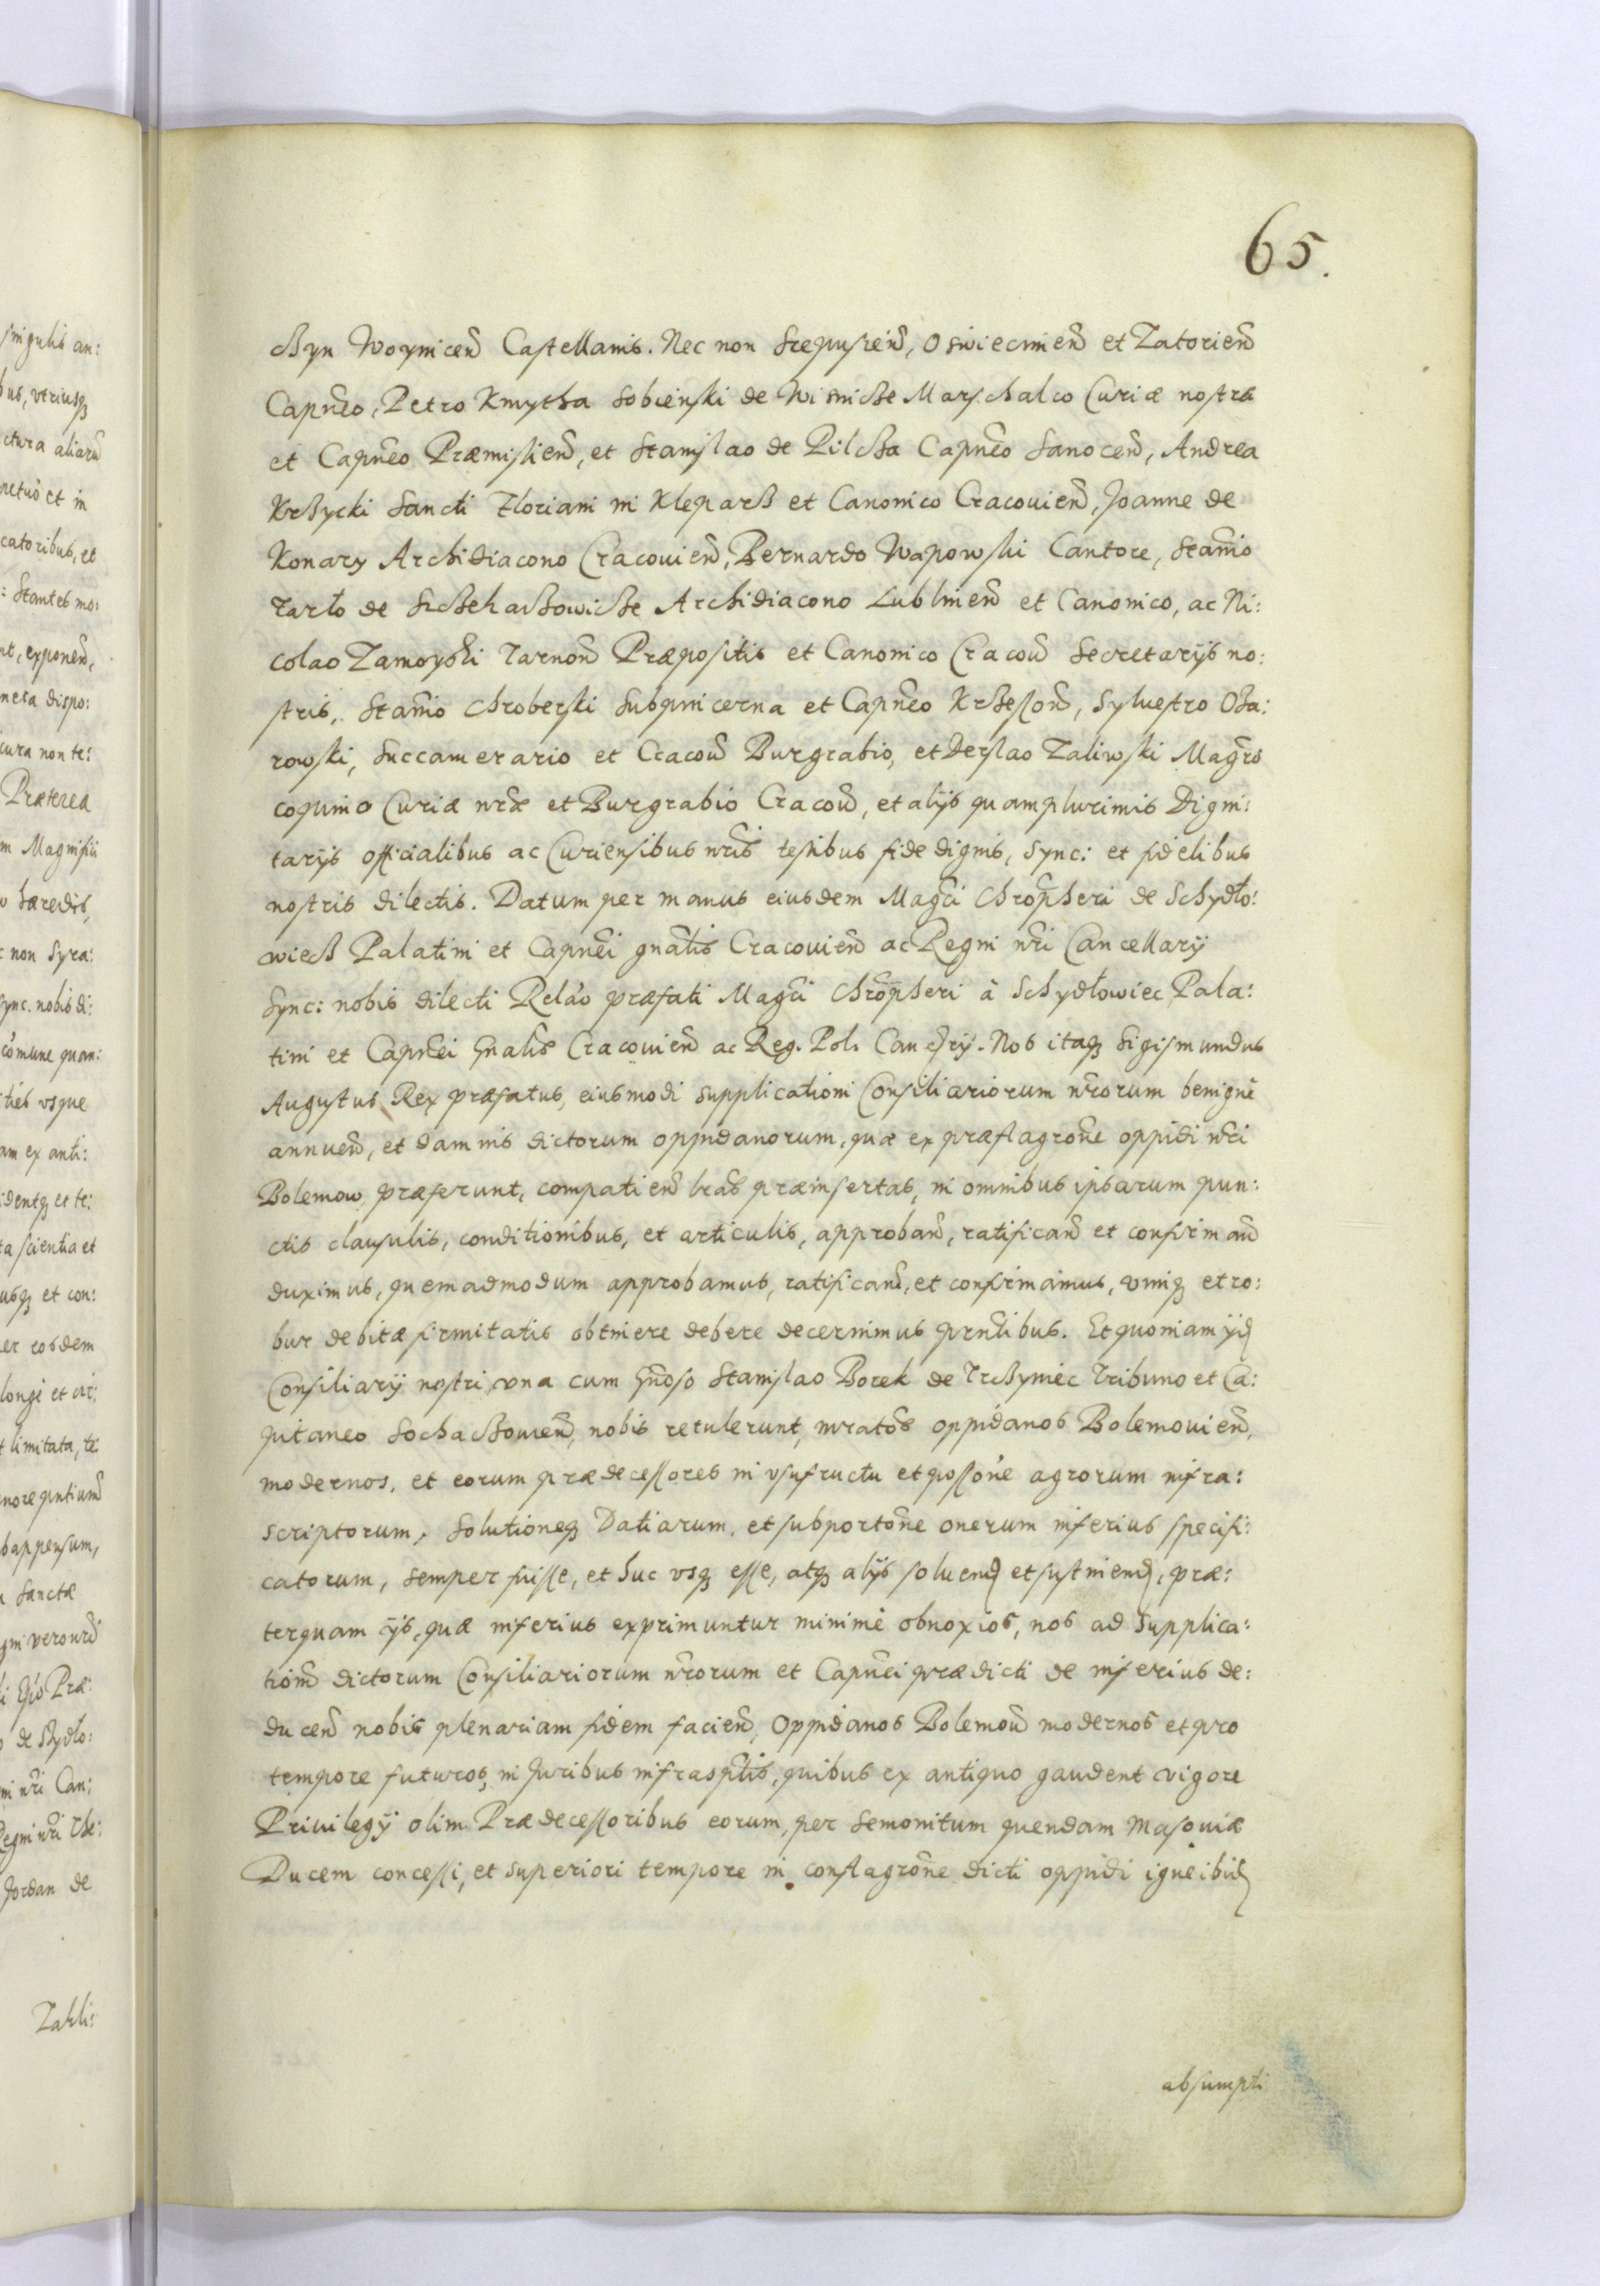 65.
czyn Woynicen̄ Castellanis. Nec non Scepusien̄, Oswiecimen̄ et Zatorien̄
Capn̄eo, Petro Kmytha Sobienski de Wisnicze Marschalco Curiæ nostræ
et Capn̄eo Præmislien̄, et Stanislao de Pilcza Capn̄eo Sanocen̄, Andrea
Krzycki Sancti Floriani in Kleparz et Canonico Cracouien̄, Joanne de
Konary Archidiacono Cracouien̄, Bernardo Wapowski Cantore, Stan̄io
Tarło de Sczekarzowicze Archidiacono Lublinen̄ et Canonico, ac Ni:
colao Zamoyski Tarnon̄ Præpositis et Canonico Cracou̅ Secretarijs no:
stris, Stan̄io Chroberski Subpincerna et Capn̄eo Krzeson̄, Syluestro Oża:
rowski, Succamerario et Cracou̅ Burgrabio, et Derslao Zaliwski Magr̄o
coquinæ Curiæ nr̄æ et Burgrabio Cracou̅, et alijs quamplurimis Digni:
tarijs officialibus ac Curiensibus nr̄is testibus fide dignis, sync: et fidelibus
nostris dilectis. Datum per manus eiusdem Magci Chrophori de Schydło:
wiecz Palatini et Capn̄ei gn̄alis Cracouien̄ ac Regni nr̄i Cancellarij
Sync: nobis dilecti Relāo præfati Magci Chrophori à Schydłowiec Pala:
tini et Capn̄ei Gn̄alis Cracouien̄ ac Reg. Pol. Cancrij. Nos itaq; Sigismundus
Augustus Rex præfatus, eiusmodi supplicationi Consiliariorum nr̄orum benigne
annuen̄, et damnis dictorum oppidanorum, quæ ex præflagron̄e oppidi nr̄i
Bolemow præferunt, compatien̄ lr̄as præinsertas, in omnibus ipsarum pun:
ctis clausulis, conditionibus, et articulis, approban̄, ratifican̄ et confirman̄
duximus, quemadmodum approbamus, ratifican̄, et confirmamus, vimq; et ro:
bur debitæ firmitatis obtinere debere decernimus prn̄tibus. Et quoniam ijd
Consiliarij nostri vna cum Gn̄oso Stanislao Borek de Trczyniec Tribuno et Ca:
pitaneo Sochaczouien̄, nobis retulerunt, mratos oppidanos Bolemouien̄,
modernos, et eorum prædecessores in vsufructu et posson̄e agrorum infra:
scriptorum, Solutioneq; Datiarum, et subporton̄e onerum inferius specifi:
catorum, semper fuisse, et huc vsq; esse, atq; alijs soluend et sustinend, præ:
terquam ijs, quæ inferius exprimuntur minimè obnoxios, nos ad supplica:
tion̄ dictorum Consiliariorum nr̄orum et Capn̄ei prædicti de inferius de:
ducen̄ nobis plenariam fidem facien̄, oppidanos Bolemou̅ modernos et pro
tempore futuros, in Juribus infrasptis, quibus ex antiquo gaudent vigore
Priuilegij olim Prædecessoribus eorum, per Semouitum quendam Masouiæ
Ducem concessi, et superiori tempore in conflagron̄e dicti oppidi igne ibid
absumpti